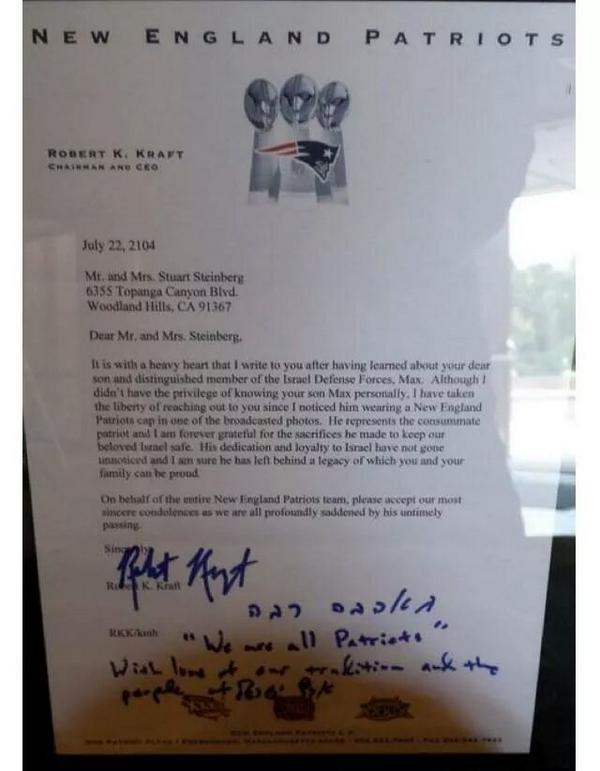 NEW ENGLAND PATRIOTS
ROBERT K. KRAFT
CHAIRMAN AND CEO
July 22, 2104
Mr. and Mrs. Stuart Steinberg
6355 Topanga Canyon Blvd.
Woodland Hills, CA 91367
Dear Mr. and Mrs. Steinberg,
It is with a heavy heart that I write to you after having learned about your dear
son and distinguished member of the Israel Defense Forces, Max. Although I
didn't have the privilege of knowing your son Max personally, I have taken
the liberty of reaching out to you since I noticed him wearing a New England
Patriots cap in one of the broadcasted photos. He represents the consummate
patriot and I am forever grateful for the sacrifices he made to keep our
beloved Israel safe. His dedication and loyalty to Israel have not gone
unnoticed and I am sure he has left behind a legacy of which you and your
family can be proud.
On behalf of the entire New England Patriots team, please accept our most
sincere condolences as we are all profoundly saddened by his untimely
passing.
Sincerely,
Robert Kraft
Robert K. Kraft
רבה
RKK/kmh
"We are all Patriots"
With love of our tradition and the
people of RKK
NEW ENGLAND PATRIOTS L.P.